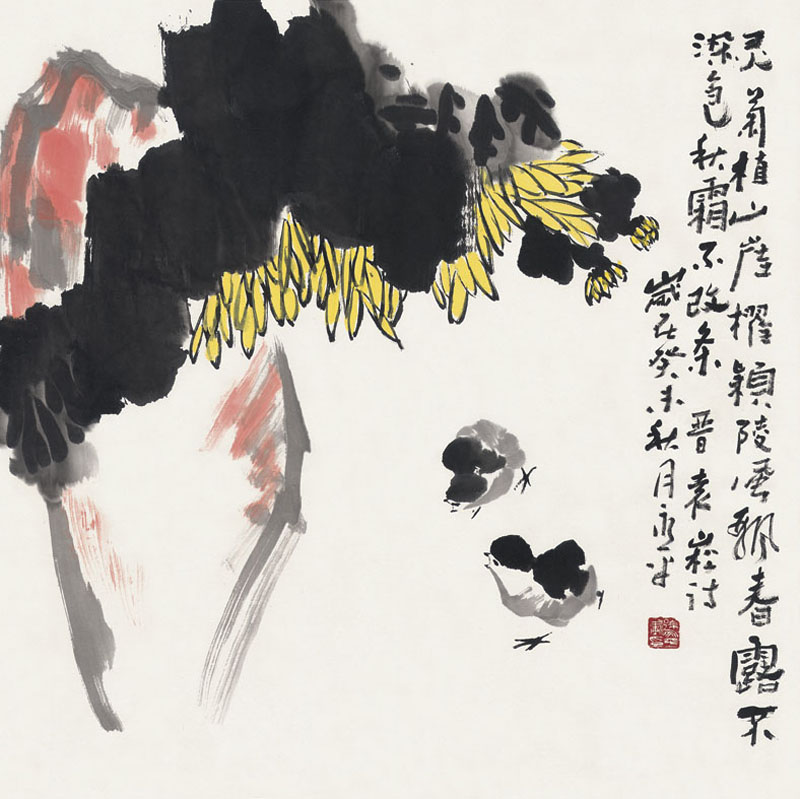 灵菊植山崖擢穎陵雪飘春露不
染色秋霜不改条 晋袁崧诗
歲在癸未秋月永平